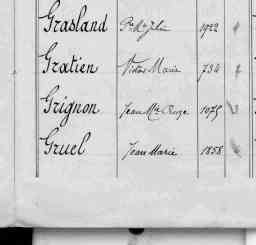 Grasland Pre Me Julien 1922 4
Gratien Victor Marie 734 2
Grignon Jean Mie Ange 1075 3
Gruel Jean Marie 1858